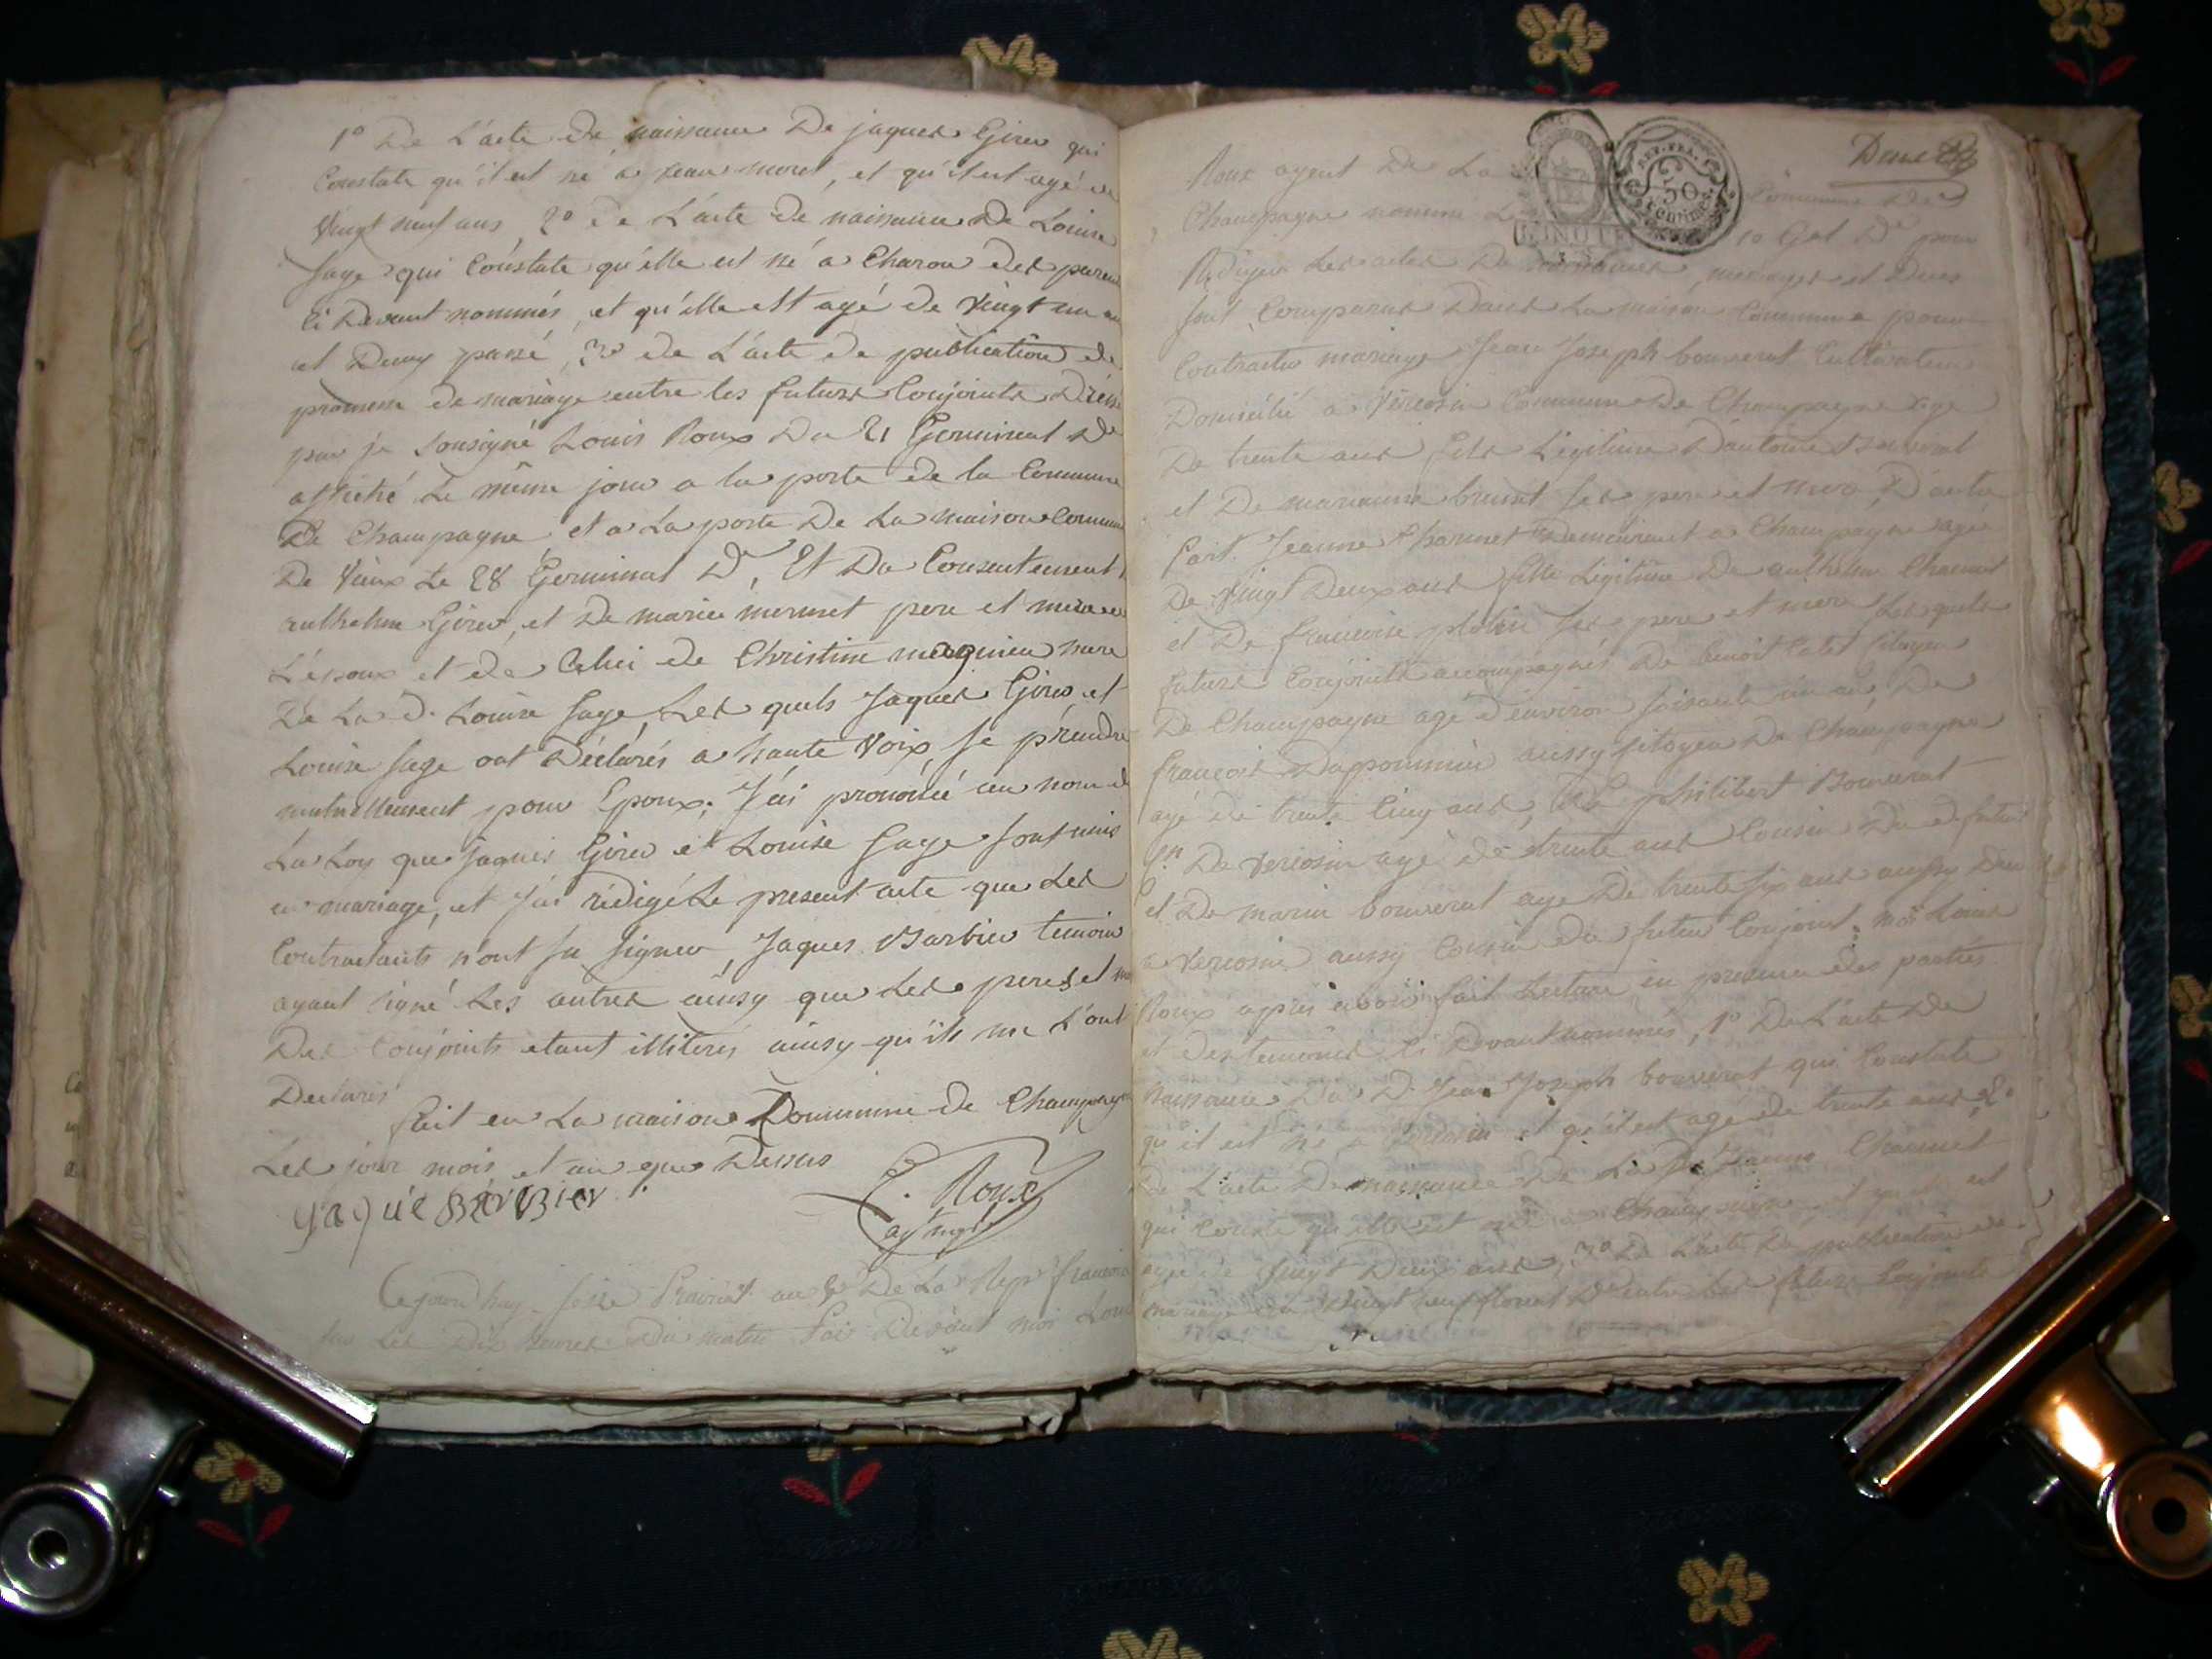 1º De L'acte de naissance De jaques Girer qui
Constate qu'il est né a, et qu'il est agé de
Vingt neuf ans, 2º de L'acte de naissance De Louise
Sage qui Constate qu'elle est né a Charon des parens
Ci Devant nommés, et qu'elle est agé de Vingt un an
et Demy passé, 3º de L'acte de publication de
promesse de mariage entre les futurs Conjoints
par je sousigné Louis Roux Du 21 Germinal Dr
affiché Le même jour a la porte de la Commune
De Champagne et a La porte De La maison Commune
De Vieux Le 28 Germinal Dr, Et Du Consentement
anthelme Girer, et De marie mermet pere et mere de
L'epoux et de Celui de Christine maginieu mere
De La D. Louise Sage Les quels Jaques Girer et
Louise Sage ont Déclarés a haute Voix, Se prendre
mutuellement pour Epoux; J'ai prononcé au nom de
La Loy que Jaques Girer et Louise Sage sont unis
en mariage, et J'ai rédigé Le present acte que Les
Contractants n'ont su signer, Jaques Barbier temoin
ayant signé Les autres ainsy que Les peres et
Des Conjoints etant illiterés ainsy qu'ils me L'ont
Declarés
fait en La maison Commune de Champagne
Les jour mois et an que Dessus
Jaque Barbier
Roux
agt mpl
Cejourd'huy Seize Prairial an De La Repe francoise
Les Dix heures Du matin Par Devant moi Louis
Roux agent De La Commune De
Champagne nommé Le 10 Gal Dr pour
Rediger Les actes De naissances, mariages et Deces
sont Comparus Dans La maison Commune pour
Contracter mariage Jean Joseph bouverat Cultivateur
Domicilié a Vercosin Commune De Champagne age
De trente ans fils Légitime D'antoine Bouverat
et De marianne brunet ses pere et mere, D'autre
Part. Jeanne Charmet Demeurant a Champagne agée
De Vingt Deux ans fille Légitime De anthelme Charmet
et De francoise ses pere et mere Lesquels
futurs Conjoints accompagnés De benoit Citoyen
De Champagne agé d'environ soisante un an De
francois Dupommier aussy Citoyen De Champagne
agé de trente Cinq ans, De philibert Bouverat
De Vercosin agé de trente ans Cousin Du futur
et De marin bouverat age De trente six ans aussy
a Vercosin aussy Cousin du futur Conjoint. moi Louis
Roux apres avoir fait Lecture en presence des parties
et des temoins Ci Devant nommés, 1º De L'acte De
Naissance Du D. Jean Joseph bouverat qui Constate
qu'il est né a Vercosin et qu'il est age de trente ans 2º
De L'acte De naissance De La De Jeanne Charmet
qui Conste qu'elle est né a Champagne et qu'elle est
agée de Vingt Deux ans, 3º De L'acte De publication de
mariage du Vingt neuf floreal Dr entre Les futurs Conjoints
50
CENTIMES